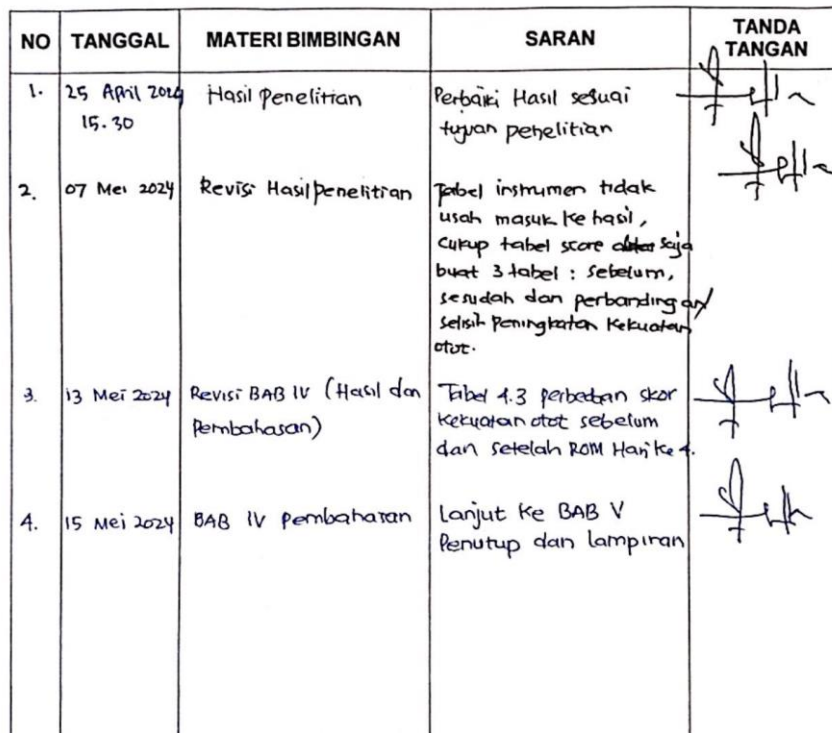 NO TANGGAL MATERI BIMBINGAN SARAN TANDA TANGAN
1. 25 April 2024 Hasil Penelitian Perbaiki Hasil sesuai
15.30 tujuan penelitian
2. 07 Mei 2024 Revisi Hasil Penelitian Tabel instrumen tidak
usah masuk ke hasil,
cukup tabel score saja
buat 3 tabel : sebelum,
sesudah dan perbandingan/
selisih Peningkatan Kekuatan
otot.
3. 13 Mei 2024 Revisi BAB IV (Hasil dan Tabel 4.3 perbedaan skor
Pembahasan) Kekuatan otot sebelum
dan setelah ROM Hari ke 4.
4. 15 Mei 2024 BAB IV Pembahasan Lanjut ke BAB V
Penutup dan lampiran